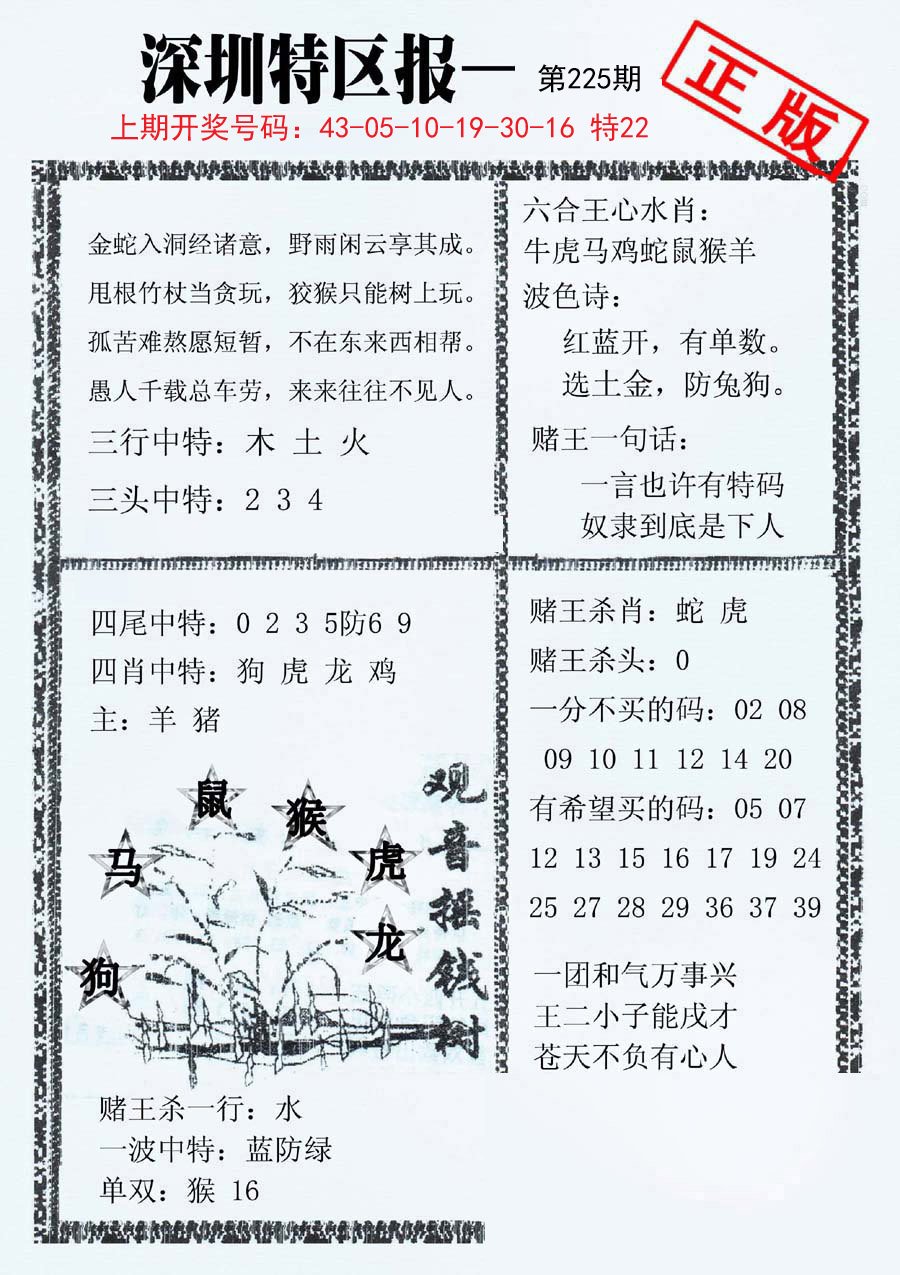 深圳特区报一 第225期
正版
上期开奖号码：43-05-10-19-30-16 特22
金蛇入洞经诸意，野雨闲云享其成。
甩根竹杖当贪玩，狡猴只能树上玩。
孤苦难熬愿短暂，不在东来西相帮。
愚人千载总车劳，来来往往不见人。
三行中特：木 土 火
三头中特：2 3 4
六合王心水肖：
牛虎马鸡蛇鼠猴羊
波色诗：
红蓝开，有单数。
选土金，防兔狗。
赌王一句话：
一言也许有特码
奴隶到底是下人
四尾中特：0 2 3 5防6 9
四肖中特：狗 虎 龙 鸡
主：羊 猪
鼠
猴
马
虎
龙
狗
观音摇钱树
赌王杀一行：水
一波中特：蓝防绿
单双：猴 16
赌王杀肖：蛇 虎
赌王杀头：0
一分不买的码：02 08
09 10 11 12 14 20
有希望买的码：05 07
12 13 15 16 17 19 24
25 27 28 29 36 37 39
一团和气万事兴
王二小子能戌才
苍天不负有心人